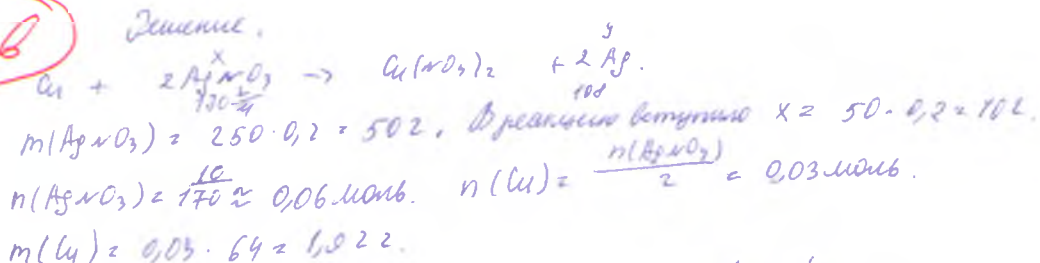 в)
Решение.
x y
Cu + 2AgNO3 → Cu(NO3)2 + 2Ag.
170 г/м 108
m(AgNO3) = 250·0,2 = 50г. В реакцию вступило x = 50·0,2=10г.
n(AgNO3) = 10/170 ≈ 0,06 моль. n(Cu) = n(AgNO3)/2 = 0,03 моль.
m(Cu) = 0,03·64 = 1,92г.